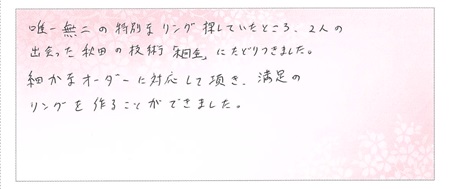 唯一無二の特別なリング探していたところ、2人の
出会った秋田の技術「杢目金」にたどりつきました。
細かなオーダーに対応して頂き、満足の
リングを作ることができました。